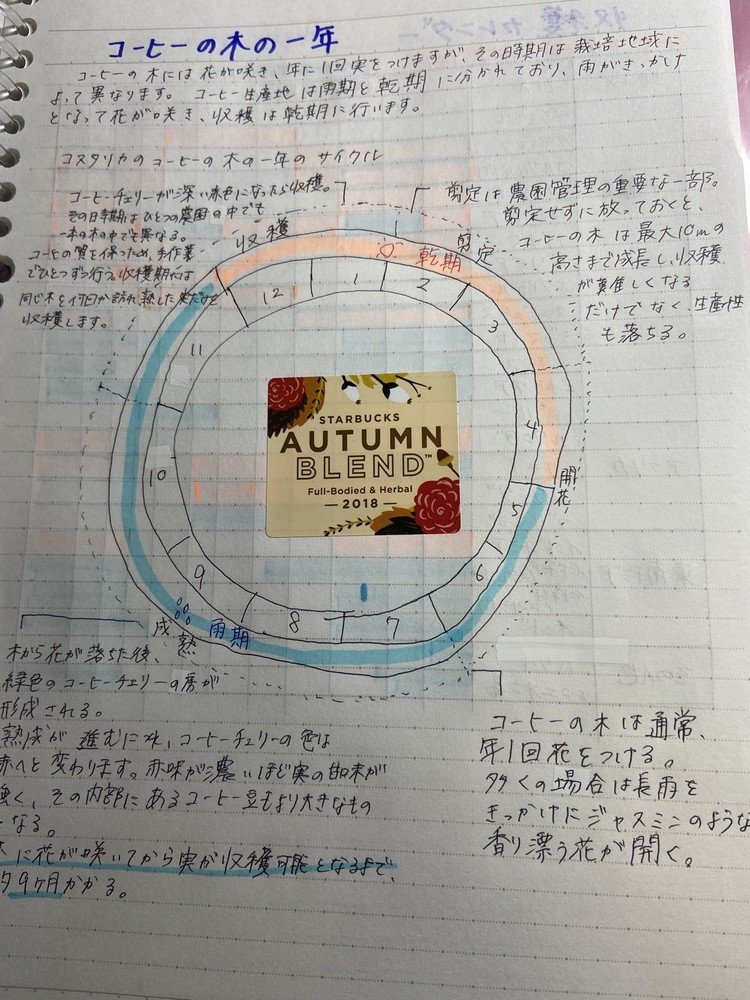 コーヒーの木の一年
コーヒーの木には花が咲き、年に1回実をつけますが、その時期は栽培地域に
よって異なります。コーヒー生産地は雨期と乾期に分かれており、雨がきっかけ
となって花が咲き、収穫は乾期に行います。
コスタリカのコーヒーの木の一年のサイクル
コーヒーチェリーが深い赤色になったら収穫。
その時期はひとつの農園の中でも
一本の木の中でも異なる。
コーヒーの質を保つため、手作業
でひとつずつ行う。収穫期には
同じ木を何日か訪れ熟した実だけを
収穫します。
剪定は農園管理の重要な一部。
剪定せずに放っておくと、
コーヒーの木は最大10mの
高さまで成長し、収穫
が難しくなる
だけでなく、生産性
も落ちる。
収穫
乾期
剪定
12
1
2
3
4
5
6
7
8
9
10
11
開花
雨期
成熟
STARBUCKS
AUTUMN
BLEND™
Full-Bodied & Herbal
2018
木から花が落ちた後、
緑色のコーヒーチェリーの房が
形成される。
熟成が進むにつれ、コーヒーチェリーの色は
赤へと変わります。赤味が濃いほど実の甘味が
強く、その内部にあるコーヒー豆もより大きなもの
なる。
に花が咲いてから実が収穫可能となるまで、
9ヶ月かかる。
コーヒーの木は通常、
年1回花をつける。
多くの場合は長雨を
きっかけにジャスミンのような
香り漂う花が開く。